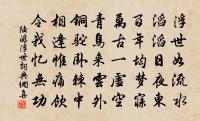 浮世如流水
滔滔日夜東
百年均夢寐
萬古一虛空
青鳥來雲外
銅駝卧棘中
相逢惟痛飲
令我憶無功
陸游浮世詞典網